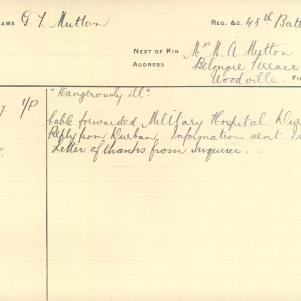 NAME G. T. Mutton REG. &c. 48th Batt
NEXT OF KIN Mrs M. A. Mutton
ADDRESS Belongie Terrace
Woodville.
"Dangerously ill"
Cable forwarded Military Hospital Dur
Reply from Durban. Information sent
Letter of thanks from Inquirer.